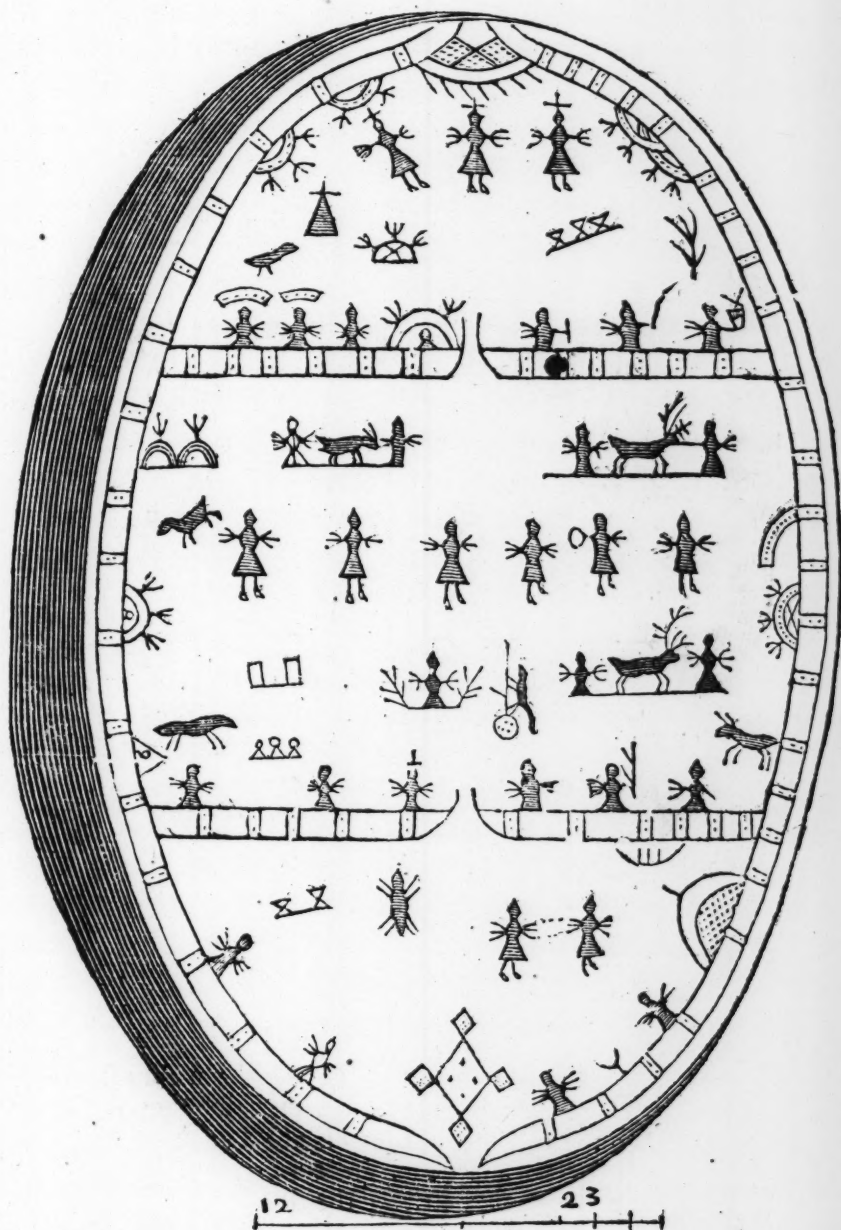 12 23